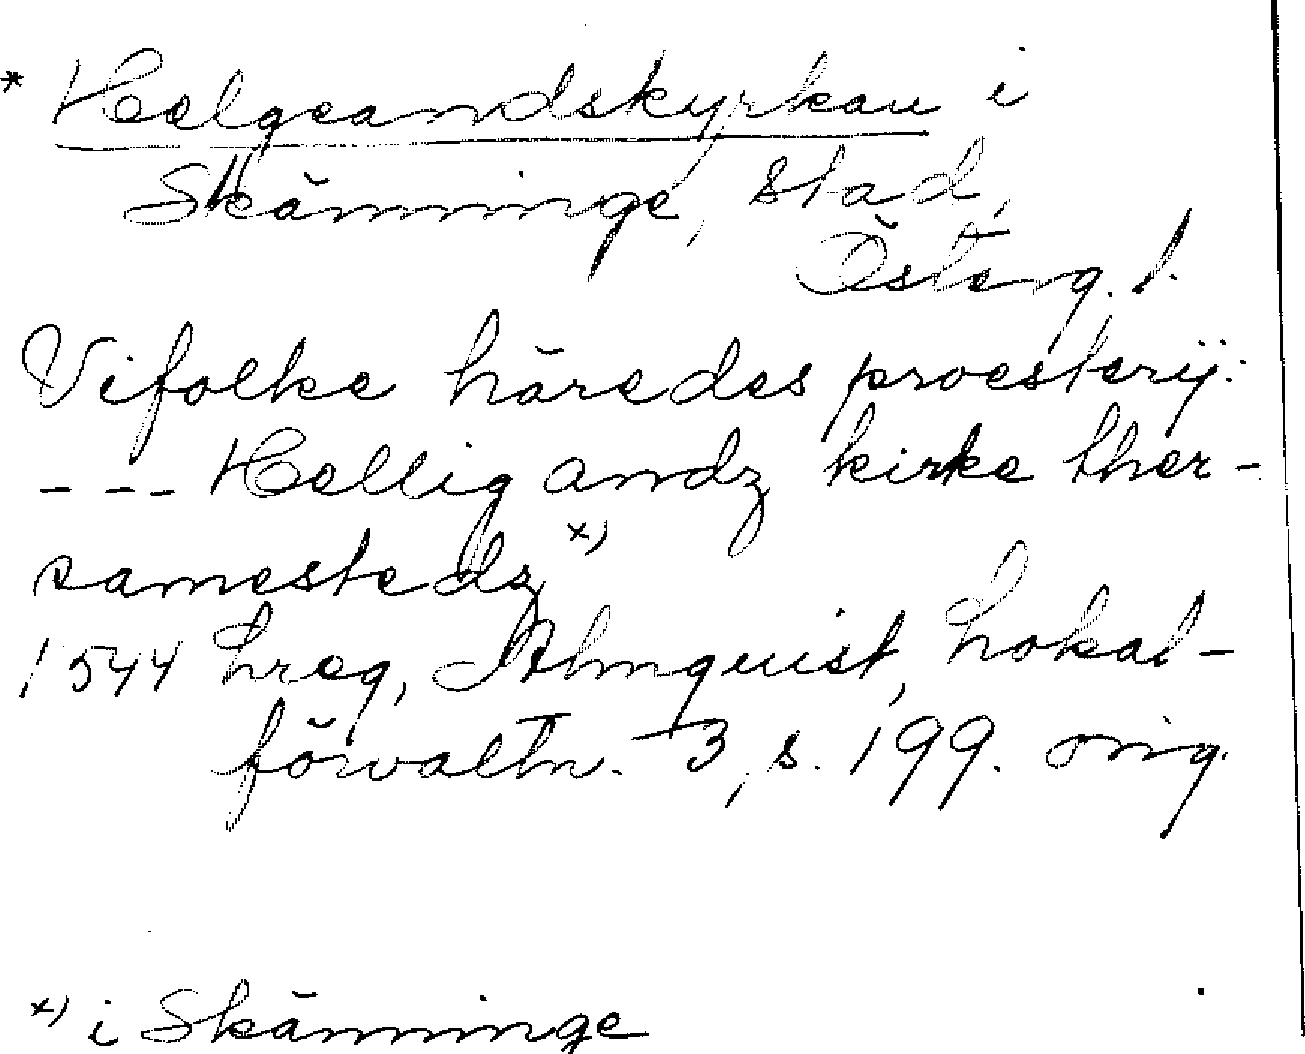 * Helgeandskyrkan i
Skänninge, stad,
Österg. l.
Vifolke häredes proesterij:
--- Hellig andz kirke ther-
samestedz x)
1544 hreg, Almquist, Lokal-
förvaltn. 3, s. 199. orig.
x) i Skänninge